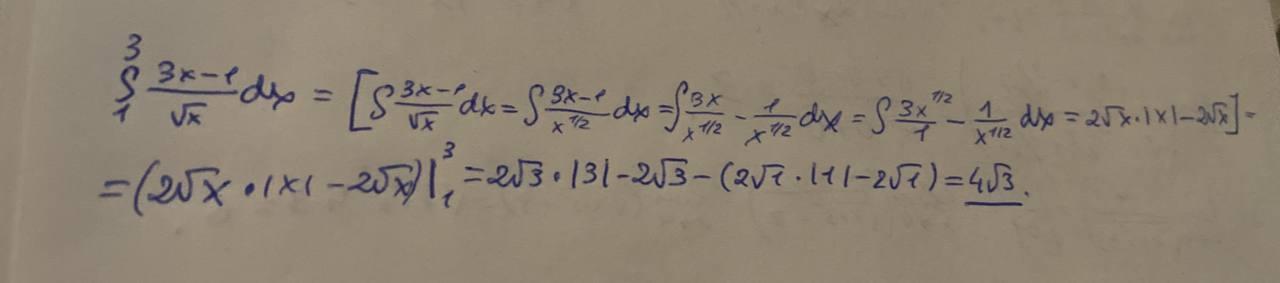 ∫₁³ (3x-1)/√x dx = [∫ (3x-1)/√x dx = ∫ (3x-1)/x^(1/2) dx = ∫ 3x/x^(1/2) - 1/x^(1/2) dx = ∫ 3x^(1/2)/1 - 1/x^(1/2) dx = 2√x·|x|-2√x] =
= (2√x · |x| - 2√x)|₁³ = 2√3 · |3| - 2√3 - (2√1 · |1| - 2√1) = 4√3.